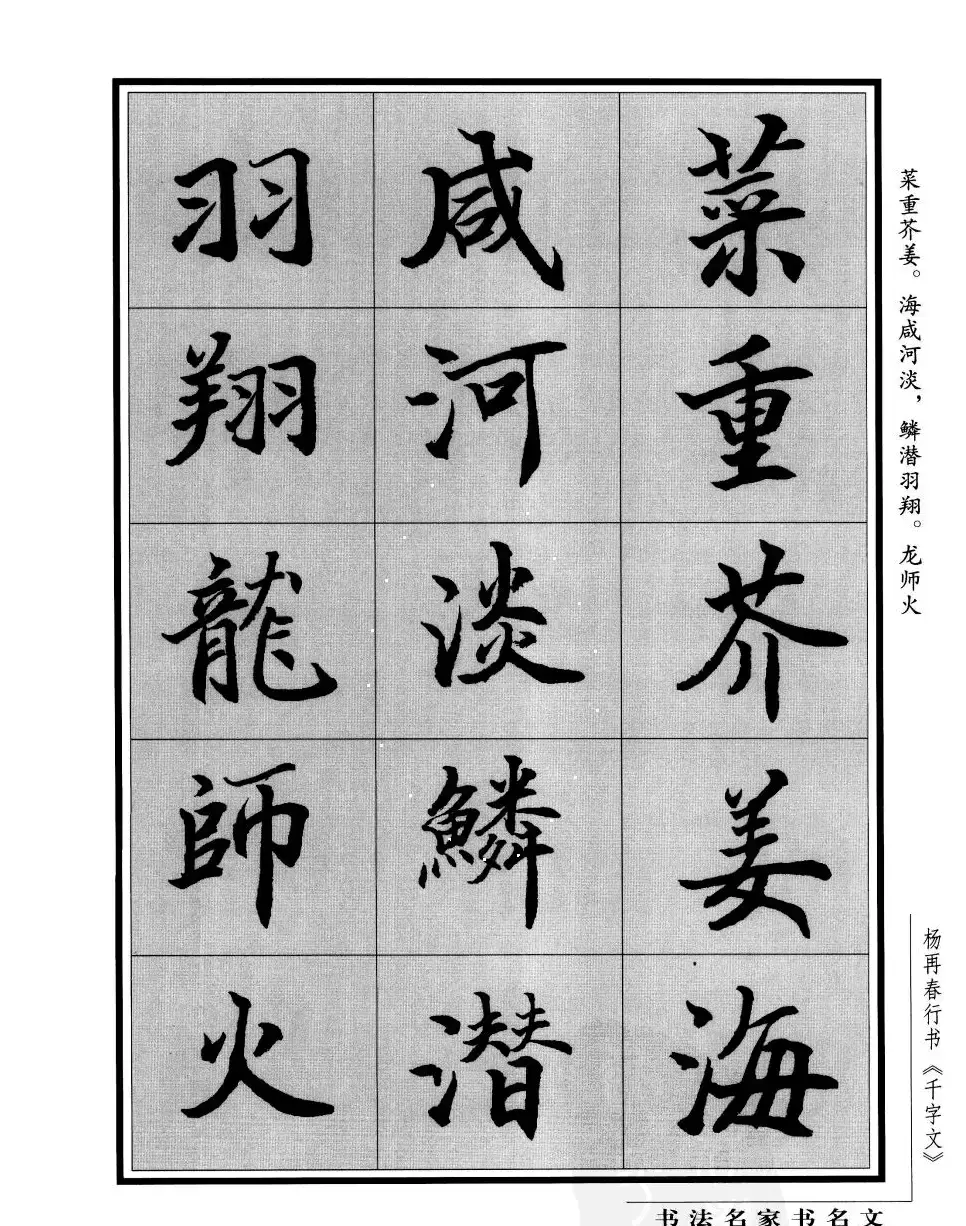 菜重芥姜海
咸河淡鳞潜
羽翔龍師火
菜重芥姜。海咸河淡，鳞潜羽翔。龙师火
杨再春行书《千字文》
书法名家书名文